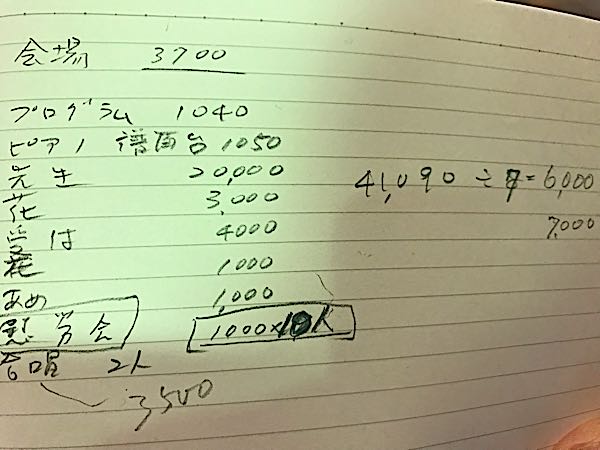 会場 3700
プログラム 1040
ピアノ 譜面台 1050
先生 20,000
41,090 ÷ 7 = 6,000
花 3,000
7,000
受付 4000
花 1000
あめ 1,000
慰労会 1000×10人
合唱 2人
3500